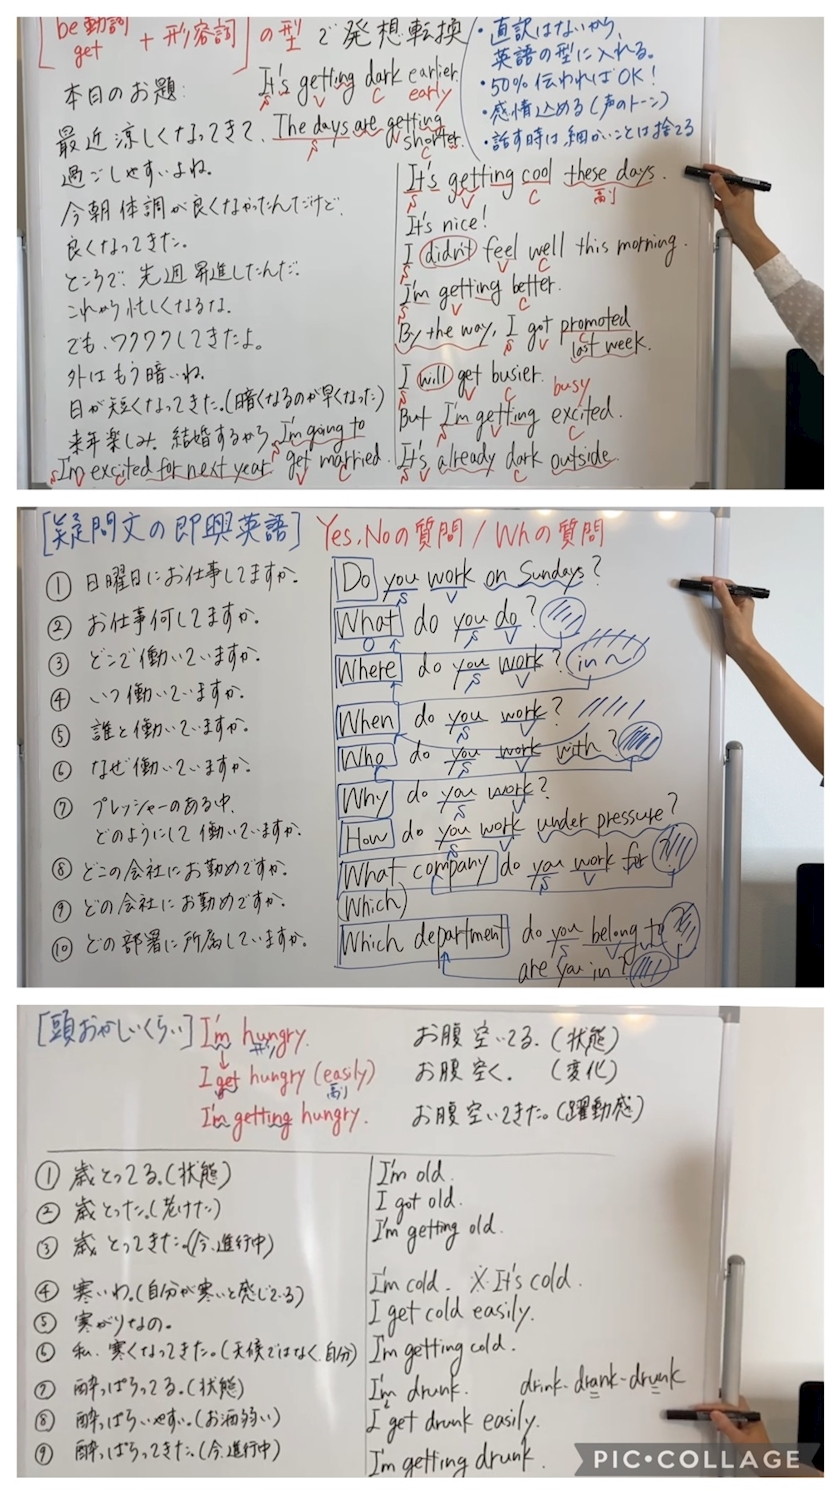 [be動詞 get + 形容詞]の型で発想転換
・直訳はないから、
英語の型に入れる。
・50%伝わればOK!
・感情込める(声のトーン)
・話す時は細かいことは捨てる
本日のお題:
It's getting dark earlier.
S V C early
最近涼しくなってきて、
The days are getting shorter.
S V C
過ごしやすいよね。
今朝体調が良くなかったんだけど、
良くなってきた。
ところで、先週昇進したんだ。
これから忙しくなるな。
でも、ワクワクしてきたよ。
外はもう暗いね。
日が短くなってきた。(暗くなるのが早くなった)
来年楽しみ、結婚するから
I'm going to get married.
S V C
I'm excited for next year
S V C
It's getting cool these days.
S V C 副
It's nice!
I didn't feel well this morning.
S V C
I'm getting better.
S V C
By the way, I got promoted last week.
S V C
I will get busier.
S V C busy
But I'm getting excited.
S V C
It's already dark outside.
S V C
[疑問文の即興英語] Yes,Noの質問/Whの質問
① 日曜日にお仕事してますか。
② お仕事何してますか。
③ どこで働いていますか。
④ いつ働いていますか。
⑤ 誰と働いていますか。
⑥ なぜ働いていますか。
⑦ プレッシャーのある中、
どのようにして働いていますか。
⑧ どこの会社にお勤めですか。
⑨ どの会社にお勤めですか。
⑩ どの部署に所属していますか。
Do you work on Sundays?
S V
What do you do?
O S V
Where do you work? in~
S V
When do you work?
S V
Who do you work with?
S V
Why do you work?
S V
How do you work under pressure?
S V
What company do you work for?
S V
(Which)
Which department do you belong to?
S V
are you in?
[頭おかしいくらい] I'm hungry.
形
お腹空いてる。(状態)
I get hungry (easily)
副
お腹空く。(変化)
I'm getting hungry.
お腹空いてきた。(躍動感)
① 歳とってる。(状態)
② 歳とった。(老けた)
③ 歳とってきた。(今、進行中)
④ 寒いわ。(自分が寒いと感じてる)
⑤ 寒がりなの。
⑥ 私、寒くなってきた。(天候ではなく、自分)
⑦ 酔っぱらってる。(状態)
⑧ 酔っぱらいやすい。(お酒弱い)
⑨ 酔っぱらってきた。(今、進行中)
I'm old.
I got old.
I'm getting old.
I'm cold. ※It's cold.
I get cold easily.
I'm getting cold.
I'm drunk. drink-drank-drunk
I get drunk easily.
I'm getting drunk.
PIC•COLLAGE